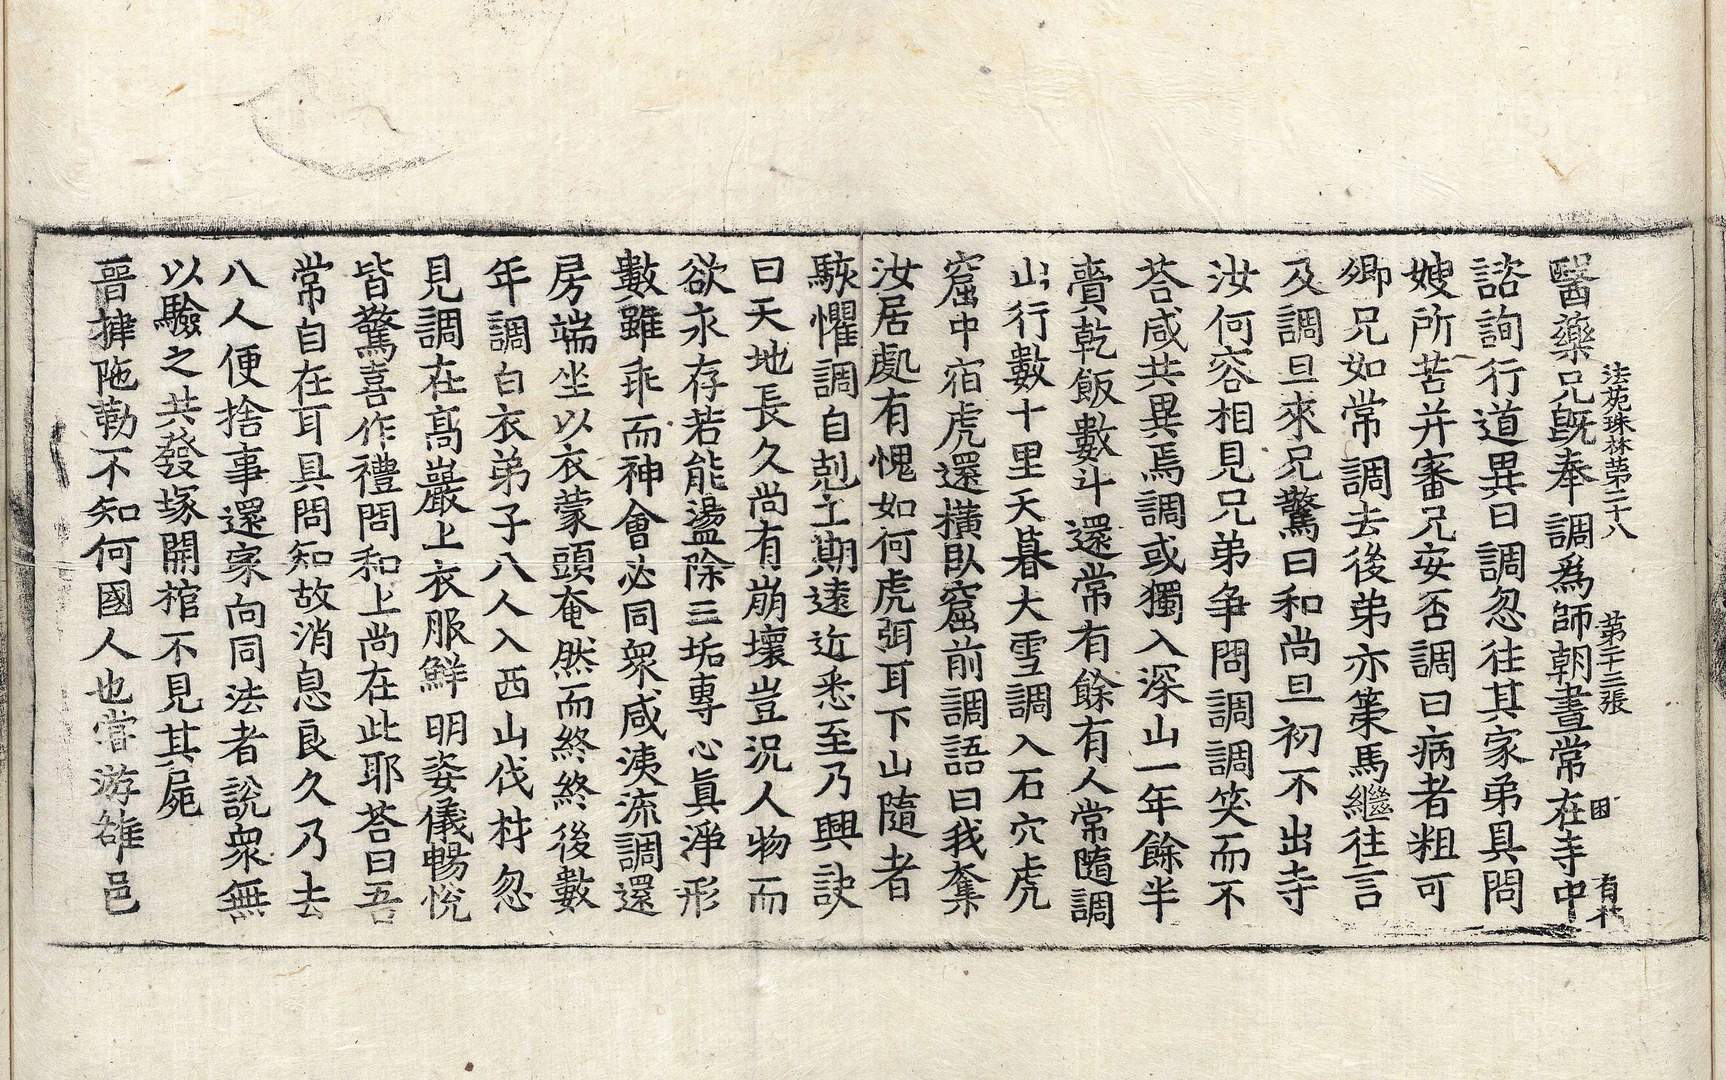 法苑珠林第二十八 第十三張 困 有林
醫藥兄旣奉調爲師朝晝常在寺中
諮詢行道異日調忽往其家弟具問
嫂所苦并審兄安否調曰病者粗可
卿兄如常調去後弟亦䇿馬繼往言
及調旦來兄驚曰和尚旦初不出寺
汝何容相見兄弟爭問調調笑而不
荅咸共異焉調或獨入深山一年餘半
賷乾飯數斗還常有餘有人常隨調
山行數十里天暮大雪調入石穴虎
窟中宿虎還橫臥窟前調語曰我奪
汝居處有愧如何虎弭耳下山隨者
駭懼調自剋亡期遠近悉至乃興訣
曰天地長久尚有崩壞豈況人物而
欲永存若能盪除三垢專心眞淨形
數雖乖而神會必同衆咸洟流調還
房端坐以衣蒙頭奄然而終終後數
年調白衣弟子八人入西山伐材忽
見調在高巖上衣服鮮明姿儀暢悅
皆驚喜作禮問和上尚在此耶荅曰吾
常自在耳具問知故消息良久乃去
八人便捨事還家向同法者說衆無
以驗之共發塚開棺不見其屍
晉揵陁勒不知何國人也嘗游雒邑